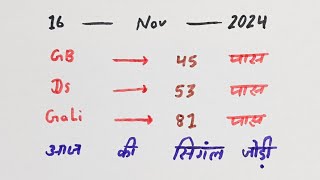 16 — Nov — 2024
GB → 45 पास
Ds → 53 पास
GaLi → 81 पास
आज की सिगंल जोड़ी